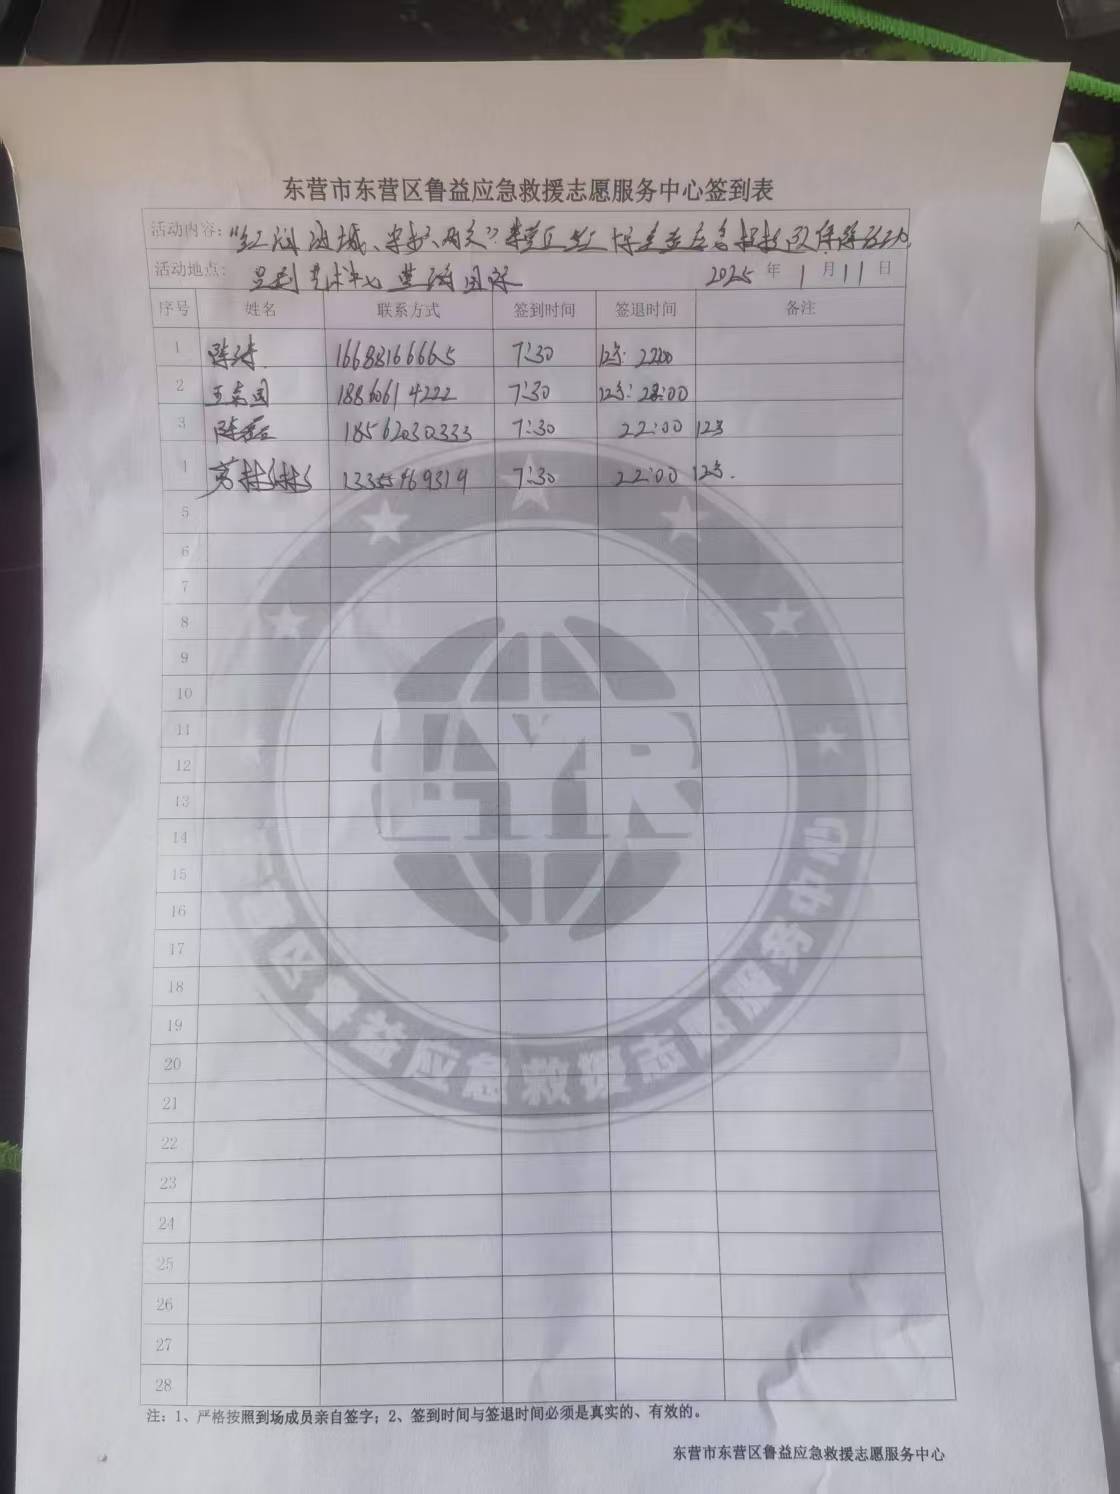 东营市东营区鲁益应急救援志愿服务中心签到表
活动内容:
活动地点: 2025年1月11日
序号 姓名 联系方式 签到时间 签退时间 备注
1 陈涛 16688166665 7:30 12号: 22:00
2 18860614222 7:30 12号: 22:00
3 陈磊 18562030333 7:30 22:00 12号
7:30 22:00 12号.
5
6
7
8
9
10
11
12
13
14
15
16
17
18
19
20
21
22
23
24
25
26
27
28
LYR
区鲁益应急救援志愿服务中心
注:1、严格按照到场成员亲自签字;2、签到时间与签退时间必须是真实的、有效的。
东营市东营区鲁益应急救援志愿服务中心